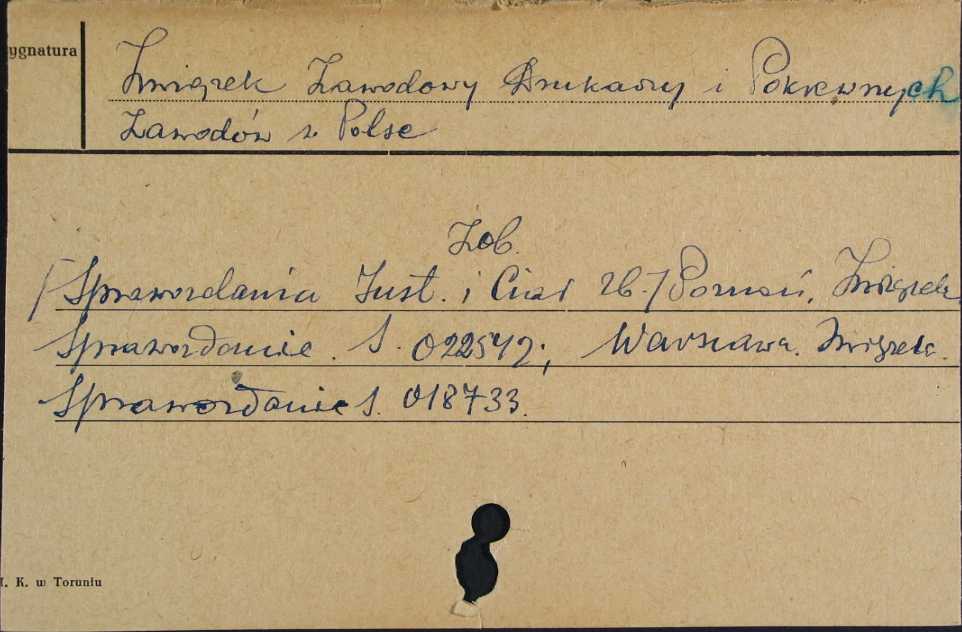 ygnatura
Związek Zawodowy Drukarzy i Pokrewnych
Zawodów w Polsce
Zob.
/Sprawozdania Inst. i Ciał zb./ Poznań, Związek.
Sprawozdanie. S. 022542; Warszawa. Związek.
Sprawozdanie S. 018733.
I. K. w Toruniu